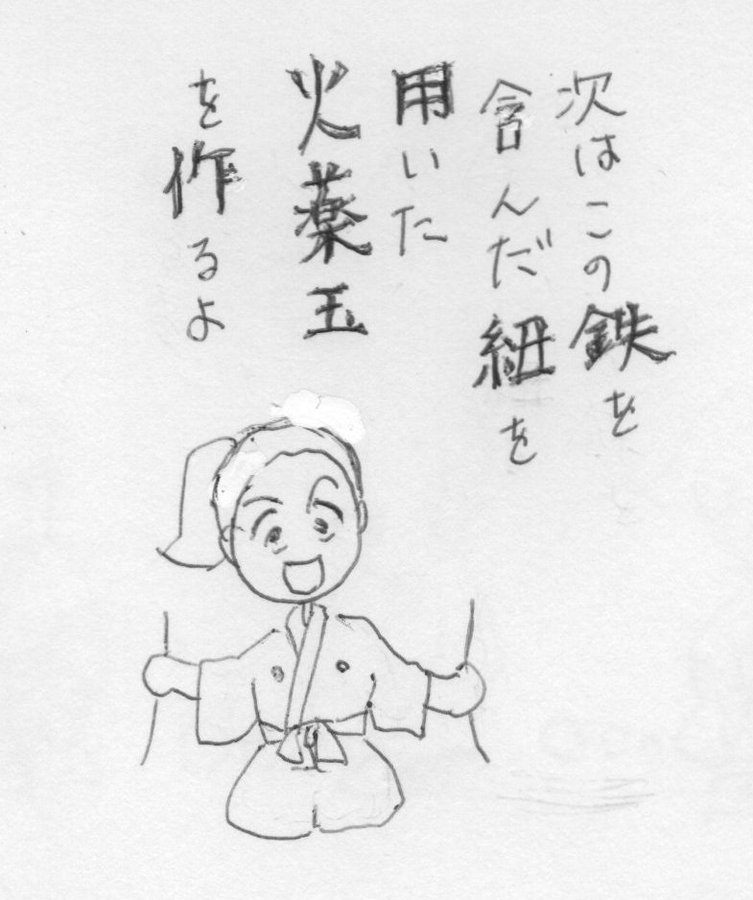 次はこの鉄を
含んだ紐を
用いた
火薬玉
を作るよ